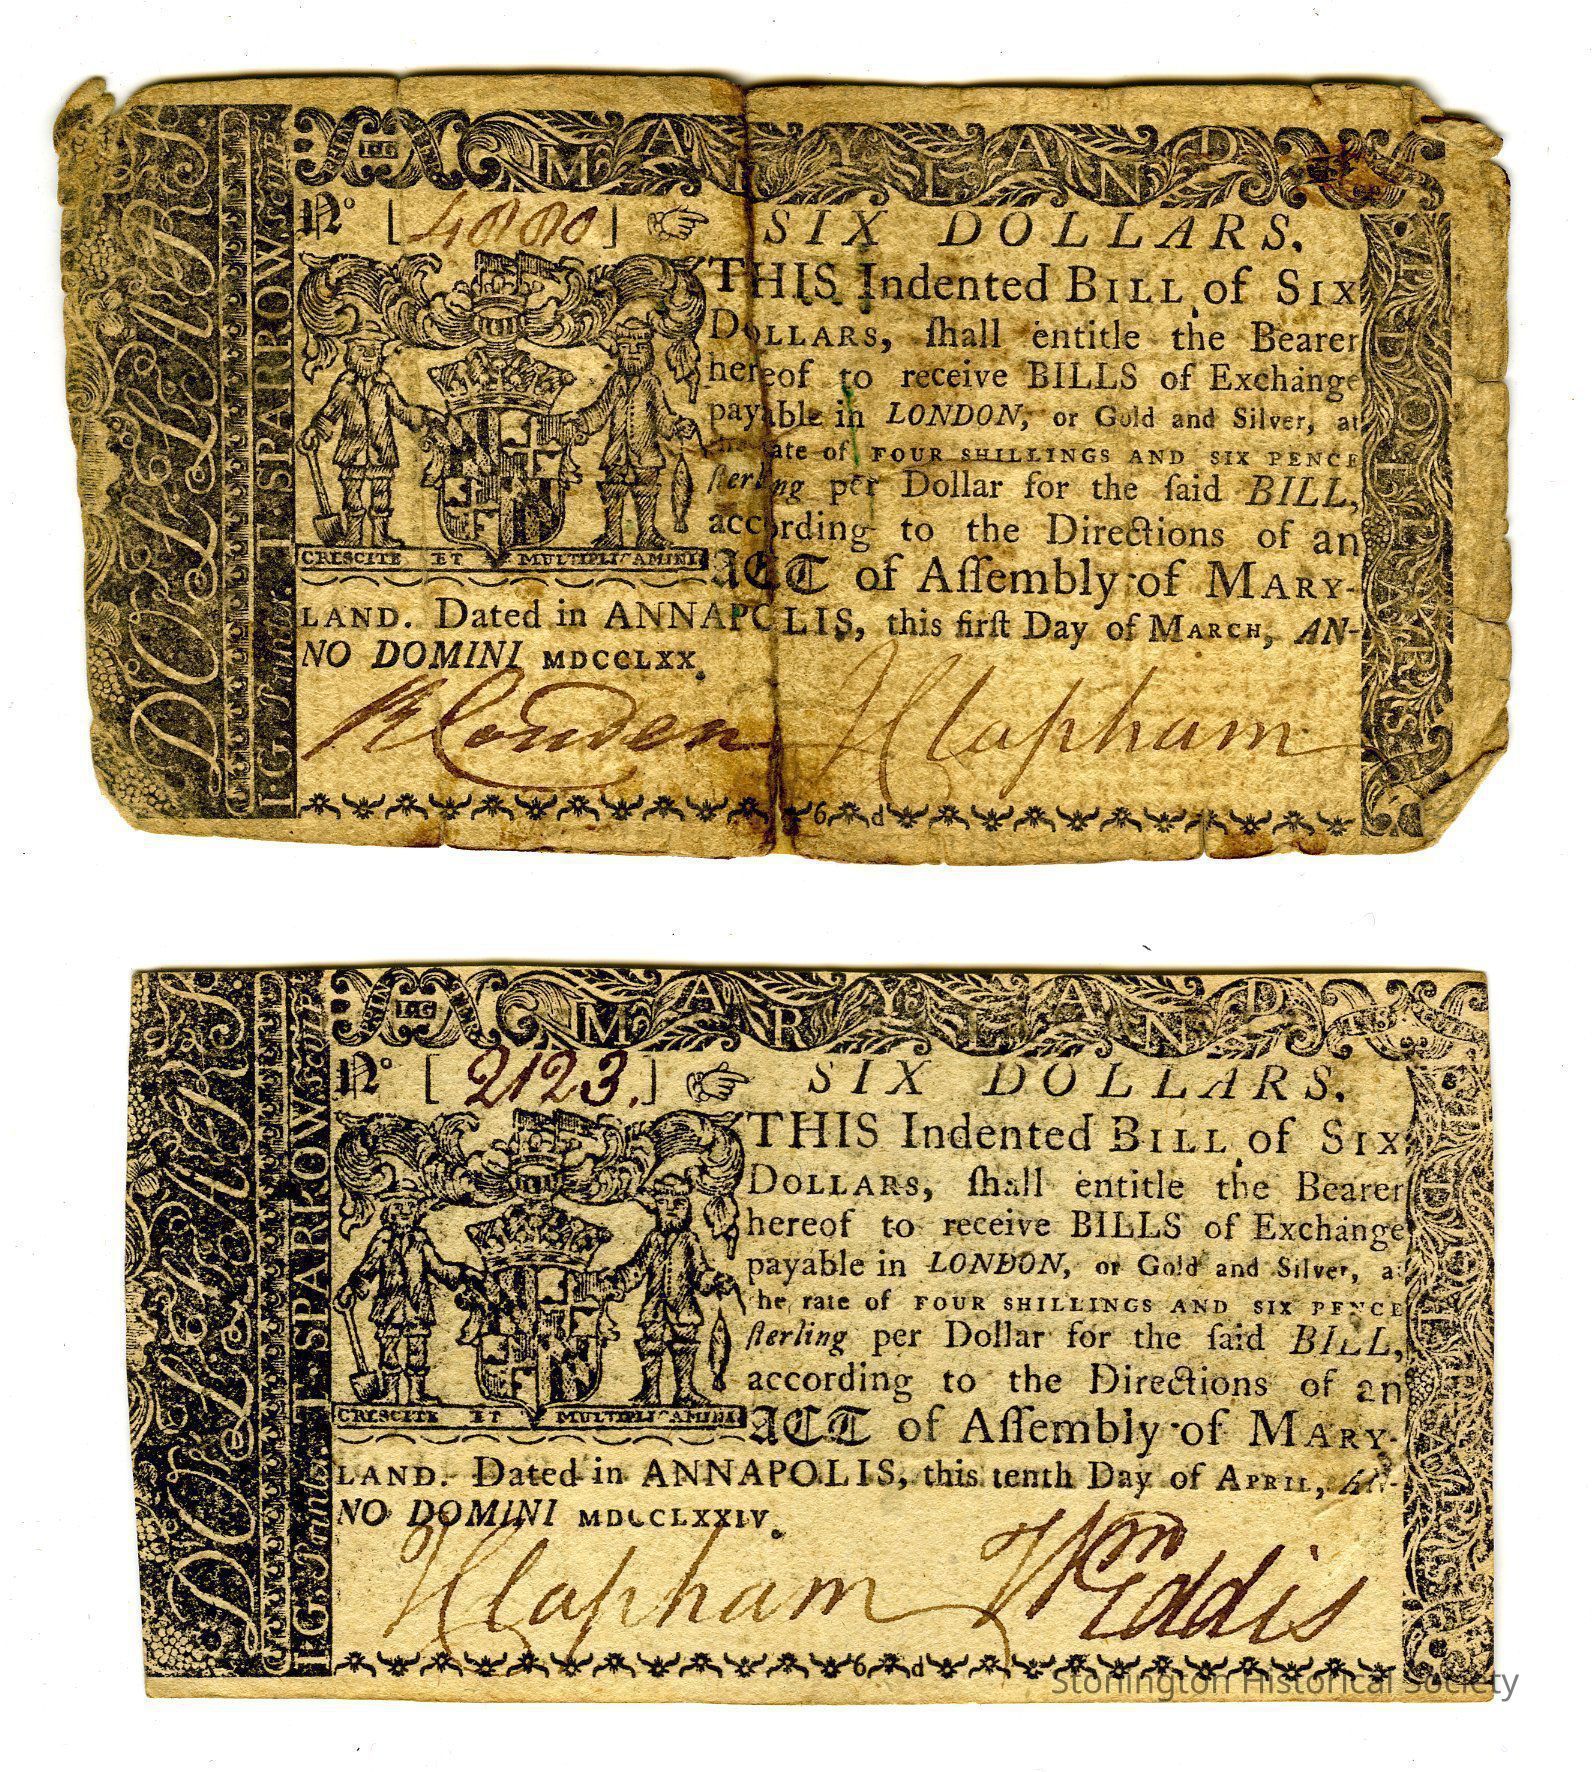 DOLLARS.
I.G. Printer. T. SPARROW. Sculp.
PRIN I.G TER
MARYLAND
No [4000] SIX DOLLARS.
THIS Indented BILL of SIX
DOLLARS, ſhall entitle the Bearer
hereof to receive BILLS of Exchange
payable in LONDON, or Gold and Silver, at
the rate of FOUR SHILLINGS AND SIX PENCE
ſterling per Dollar for the ſaid BILL,
according to the Directions of an
ACT of Aſſembly of MARY-
CRESCITE ET MULTIPLICAMINI
LAND. Dated in ANNAPOLIS, this firſt Day of MARCH, AN-
NO DOMINI MDCCLXX.
R Couden J Clapham
6 d
DOLLARS
DOLLARS.
I.G. Printer. T. SPARROW. Sculp.
PRIN I.G TER
MARYLAND
No [2123.] SIX DOLLARS.
THIS Indented BILL of SIX
DOLLARS, ſhall entitle the Bearer
hereof to receive BILLS of Exchange
payable in LONDON, or Gold and Silver, a
he rate of FOUR SHILLINGS AND SIX PENCE
ſterling per Dollar for the ſaid BILL,
according to the Directions of an
ACT of Aſſembly of MARY-
CRESCITE ET MULTIPLICAMINI
LAND. Dated in ANNAPOLIS, this tenth Day of APRIL, AN-
NO DOMINI MDCCLXXIV.
J Clapham Wm Eddis
6 d
DOLLARS
Stonington Historical Society